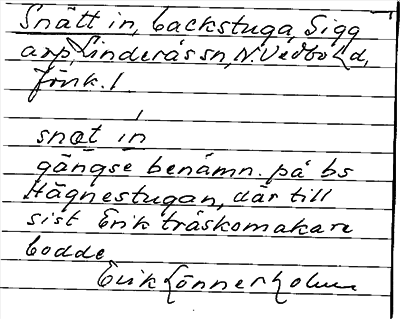 Snätt in, backstuga, Sigg
arp, Linderås sn, N. Vedbo hd,
Jönk. l.
snæt in
gängse benämn. på bs
Hägnestugan, där till
sist Erik träskomakare
bodde
Erik Lönnerholm